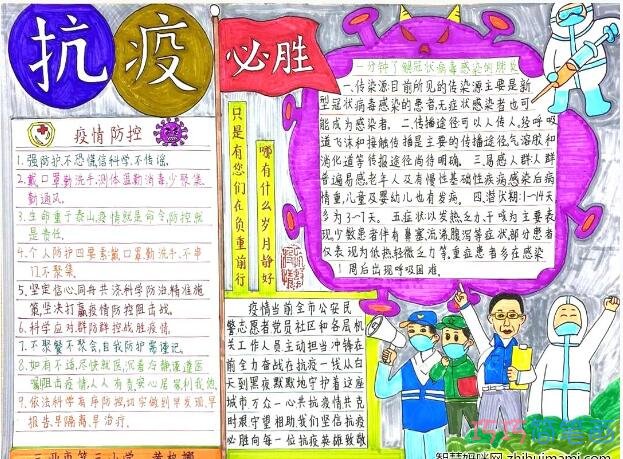 抗疫
必胜
疫情防控
1.强防护不恐慌信科学,不传谣。
2.戴口罩勤洗手,测体温勤消毒,少聚集,
勤通风。
3.生命重于泰山,疫情就是命令,防控就
是责任。
4.个人防护四要素:戴口罩,勤洗手,不串
门不聚集。
5.坚定信心,同舟共济,科学防治,精准施
策,坚决打赢疫情防控阻击战。
6.科学应对,群防群控战胜疫情。
7.不聚餐不聚会,自我防护需谨记。
8.如有不适,尽快就医
阻击疫情,人人有责
9.依法科学有序防控,切实做到早发现,早
报告,早隔离,早治疗。
只是有您们在负重前行
哪有什么岁月静好
一分钟了解冠状病毒感染的肺炎
一、传染源目前所见的传染源主要是新
型冠状病毒感染的患者,无症状感染者也可
能成为感染者。二、传播途径可以人传人,经呼吸
道飞沫和接触传播是主要的传播途径,气溶胶和
消化道等传报途径尚待明确。三、易感人群人群
普遍易感,老年人及有慢性基础性疾病感染后病
情重,儿童及婴幼儿也有发病。四、潜伏期:1—14天,
多为3—7天。五、症状以发热乏力干咳为主要表
现,少数患者伴有鼻塞,流涕腹泻等症状,部分患者
仅表现为低热轻微乏力等,重症患者多在感染
1周后出现呼吸困难。
疫情当前全市公安民
警志愿者党员社区和各层机
关工作人员主动担当冲锋在
前全力奋战在抗疫一线从白
天到黑夜默默地守护着这座
城市万众一心共抗疫情共克
时艰守望相助,我们坚信在抗疫
必胜向每一位抗疫英雄致敬
智慧妈咪网 zhihuimami.com